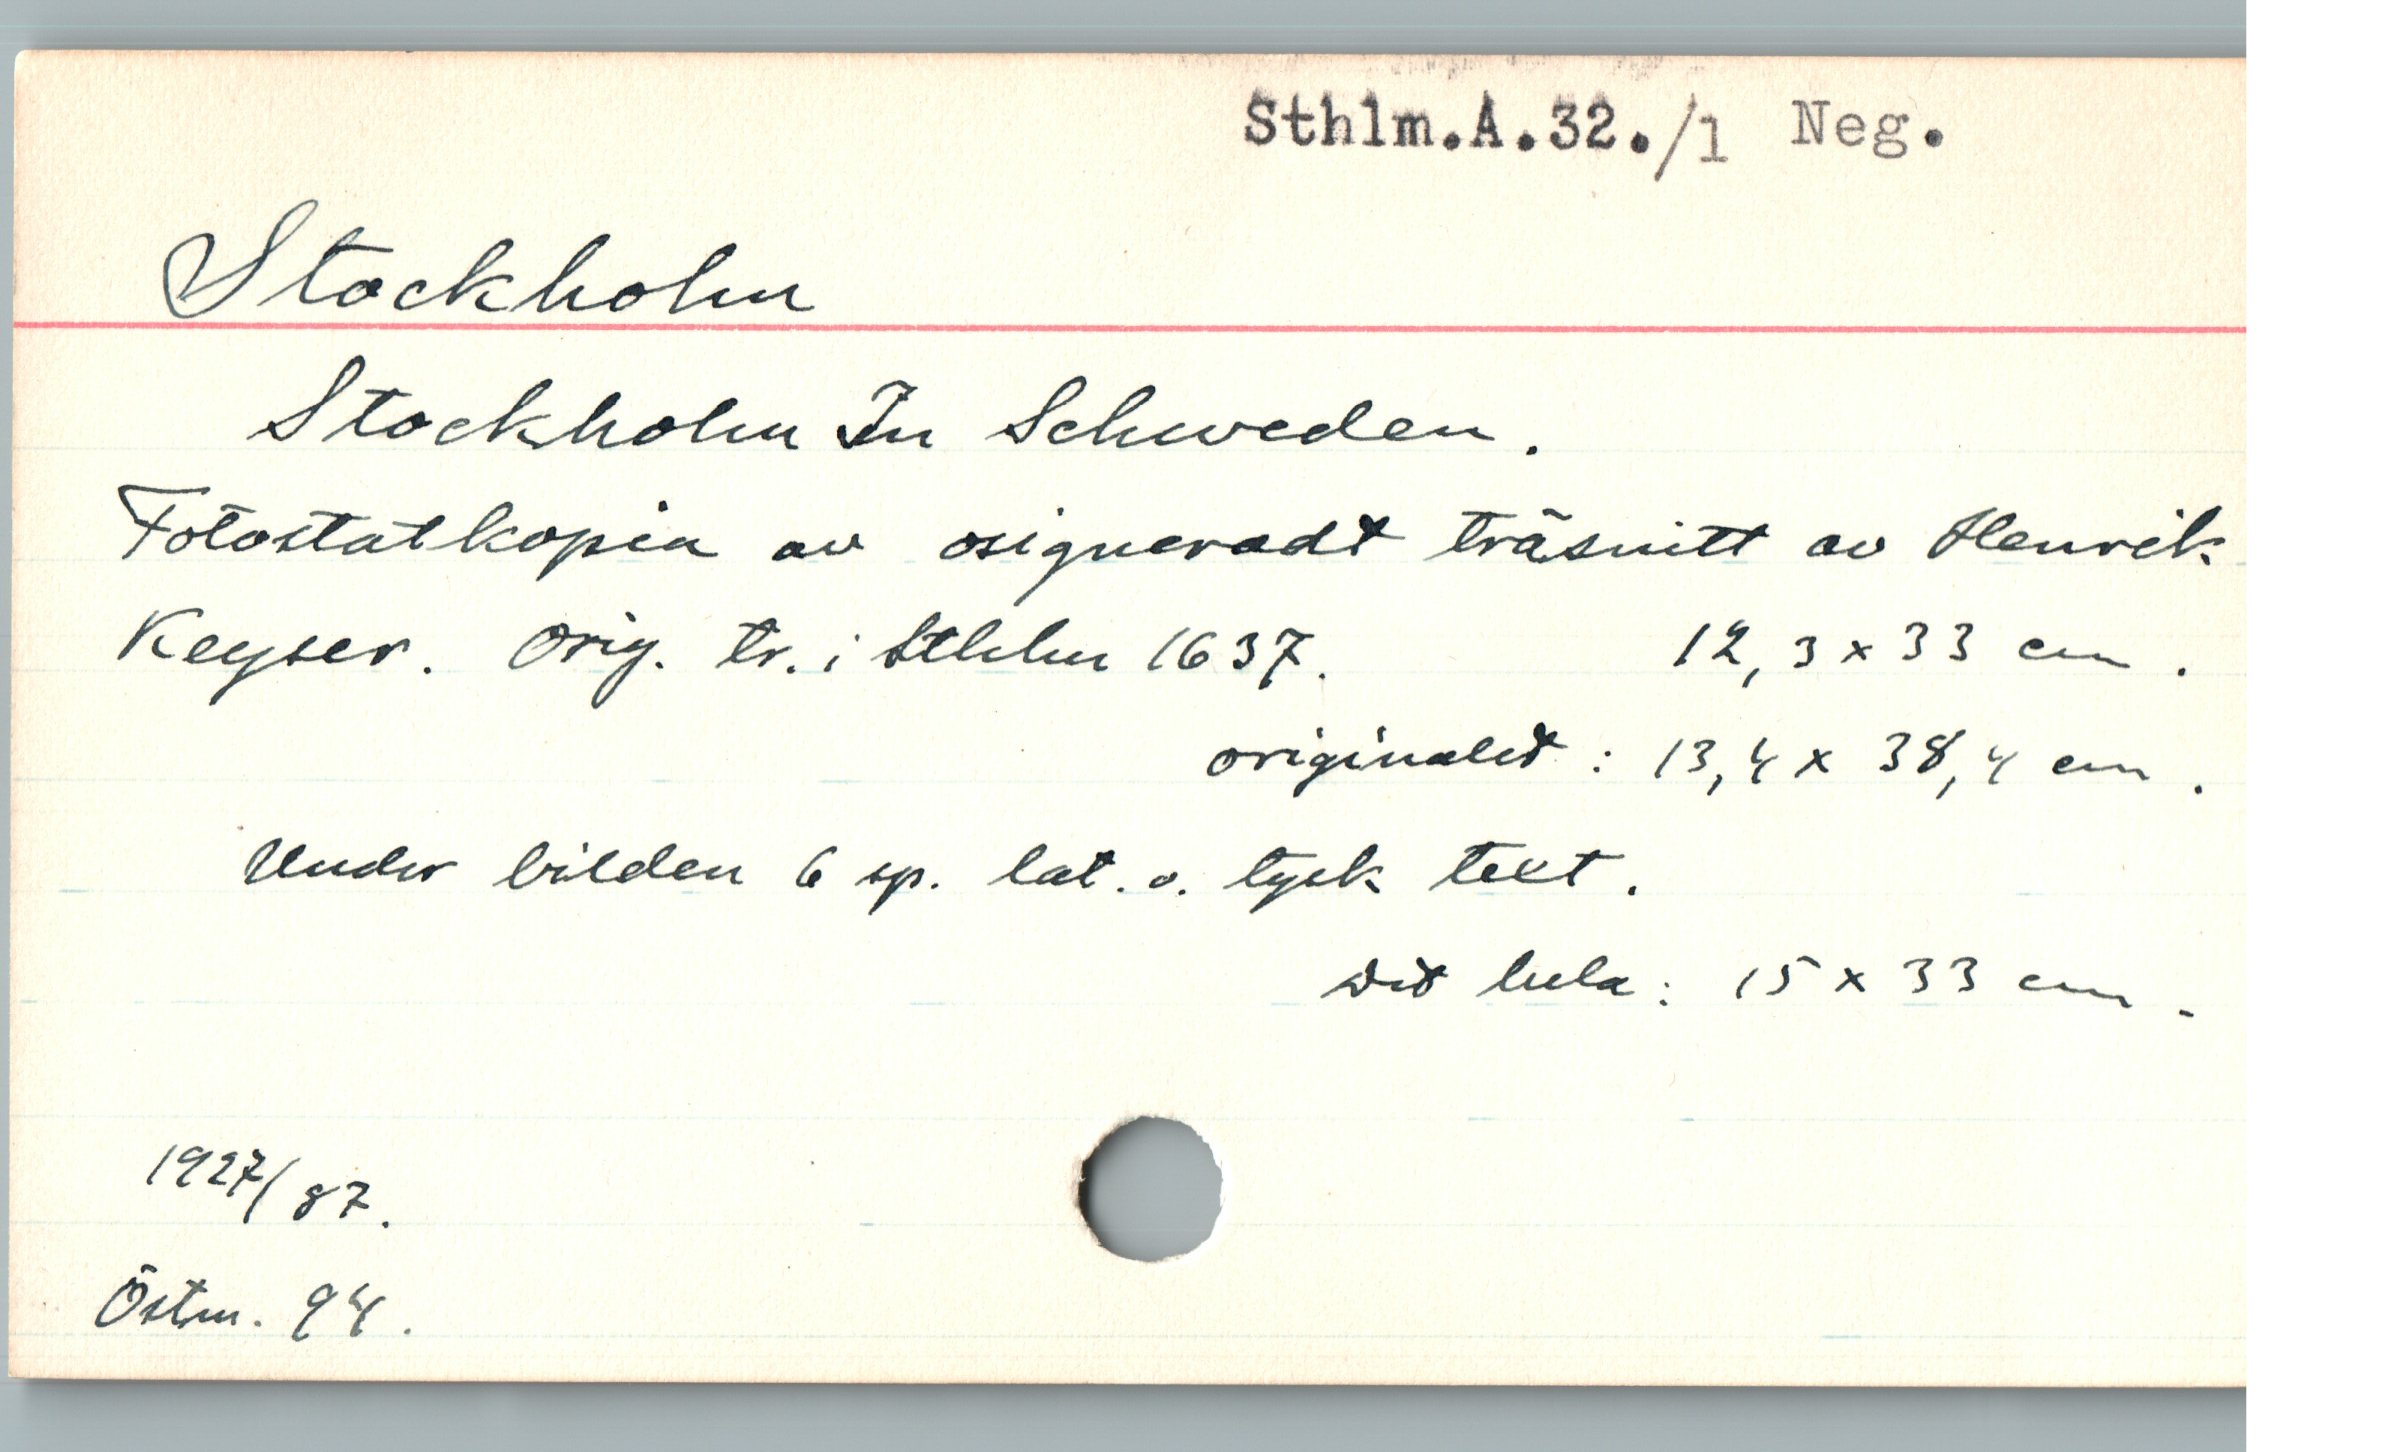 Sthlm.A.32./1 Neg.
Stockholm
Stockholm In Schweden.
Fotostatkopia av osigneradt träsnitt av Henrik
Keyser. Orig. tr. i Sthlm 1637. 12,3 x 33 cm.
originalet: 13,4 x 38,4 cm.
Under bilden 6 sp. lat. o. tysk text.
det hela: 15 x 33 cm.
1927/87.
Östm. 94.